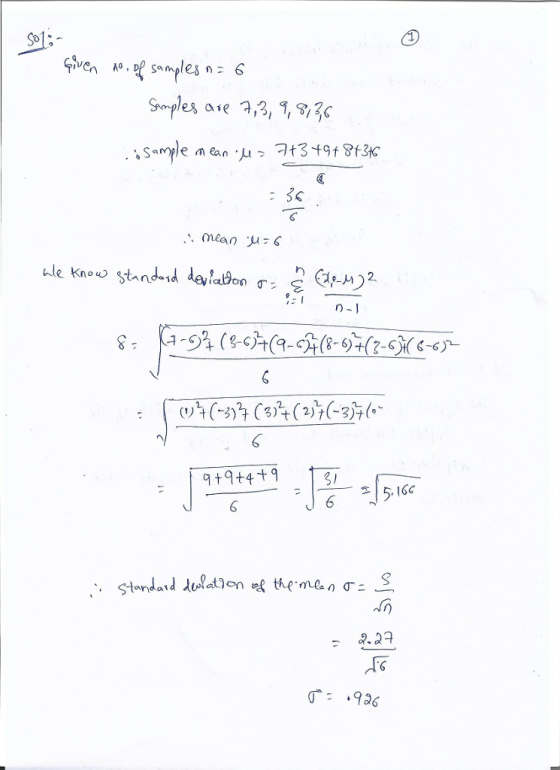 Sol:- ①
Given no. of samples n = 6
Samples are 7,3, 9, 8,3,6
∴ sample mean μ = 7+3+9+8+3+6 / 6
= 36 / 6
∴ mean μ = 6
We know standard deviation σ = Σ i=1 n (xi-μ)² / n-1
S = √((7-6)²+(3-6)²+(9-6)²+(8-6)²+(3-6)²+(6-6)² / 6)
= √((1)²+(-3)²+(3)²+(2)²+(-3)²+(0² / 6)
= √(9+9+4+9 / 6) = √(31 / 6) = √5.166
∴ Standard deviation of the mean σ = S / √n
= 2.27 / √6
σ = .926